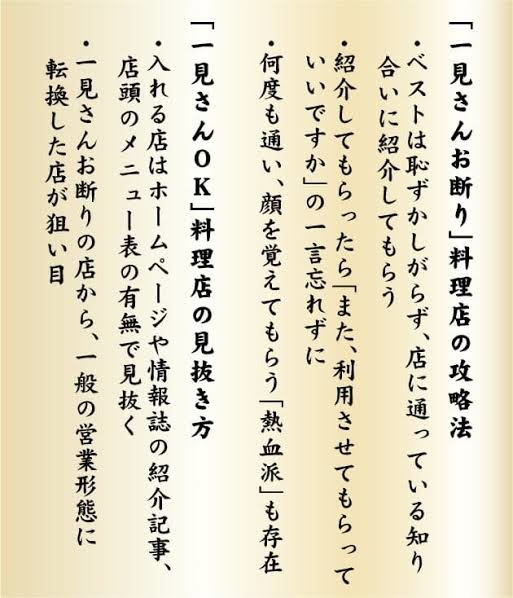 「一見さんお断り」料理店の攻略法
・ベストは恥ずかしがらず、店に通っている知り
合いに紹介してもらう
・紹介してもらったら「また、利用させてもらって
いいですか」の一言忘れずに
・何度も通い、顔を覚えてもらう「熱血派」も存在
「一見さんOK」料理店の見抜き方
・入れる店はホームページや情報誌の紹介記事、
店頭のメニュー表の有無で見抜く
・一見さんお断りの店から、一般の営業形態に
転換した店が狙い目